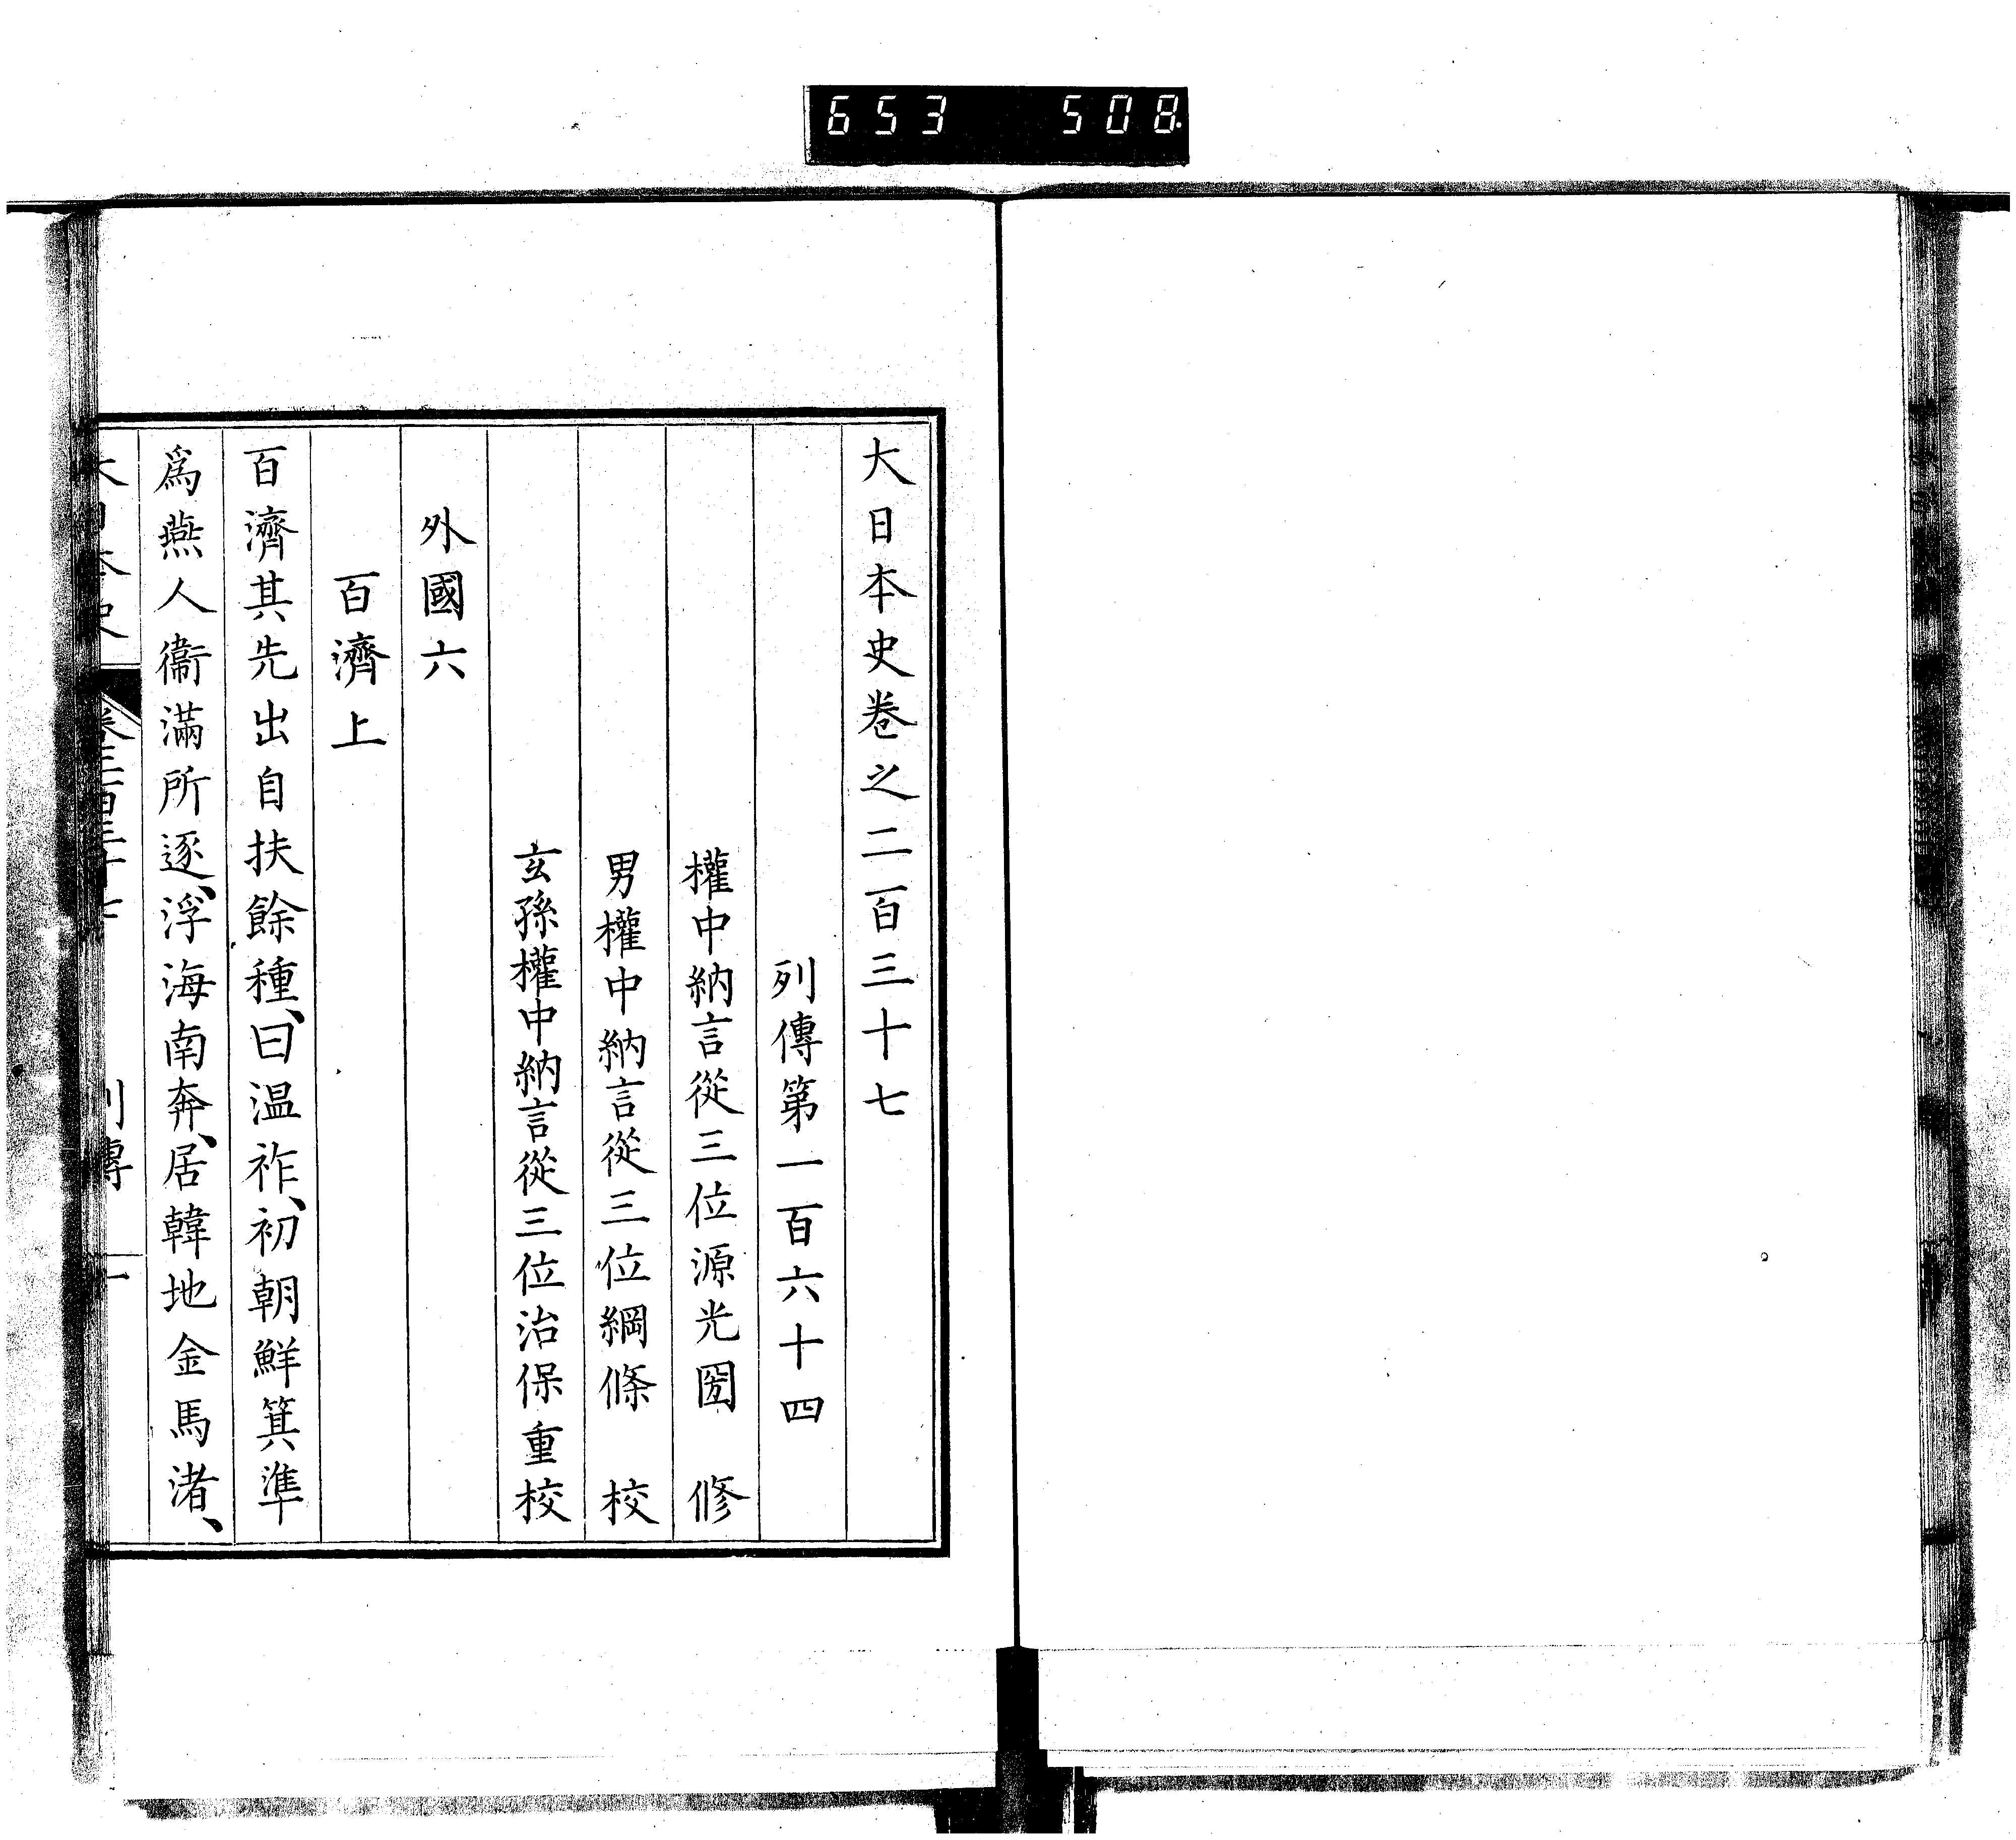 653 508.
大日本史卷之二百三十七
列傳第一百六十四
權中納言從三位源光圀 修
男權中納言從三位綱條 校
玄孫權中納言從三位治保重校
外國六
百濟上
百濟其先出自扶餘種、曰温祚、初朝鮮箕準
爲燕人衞滿所逐、浮海南奔、居韓地金馬渚、